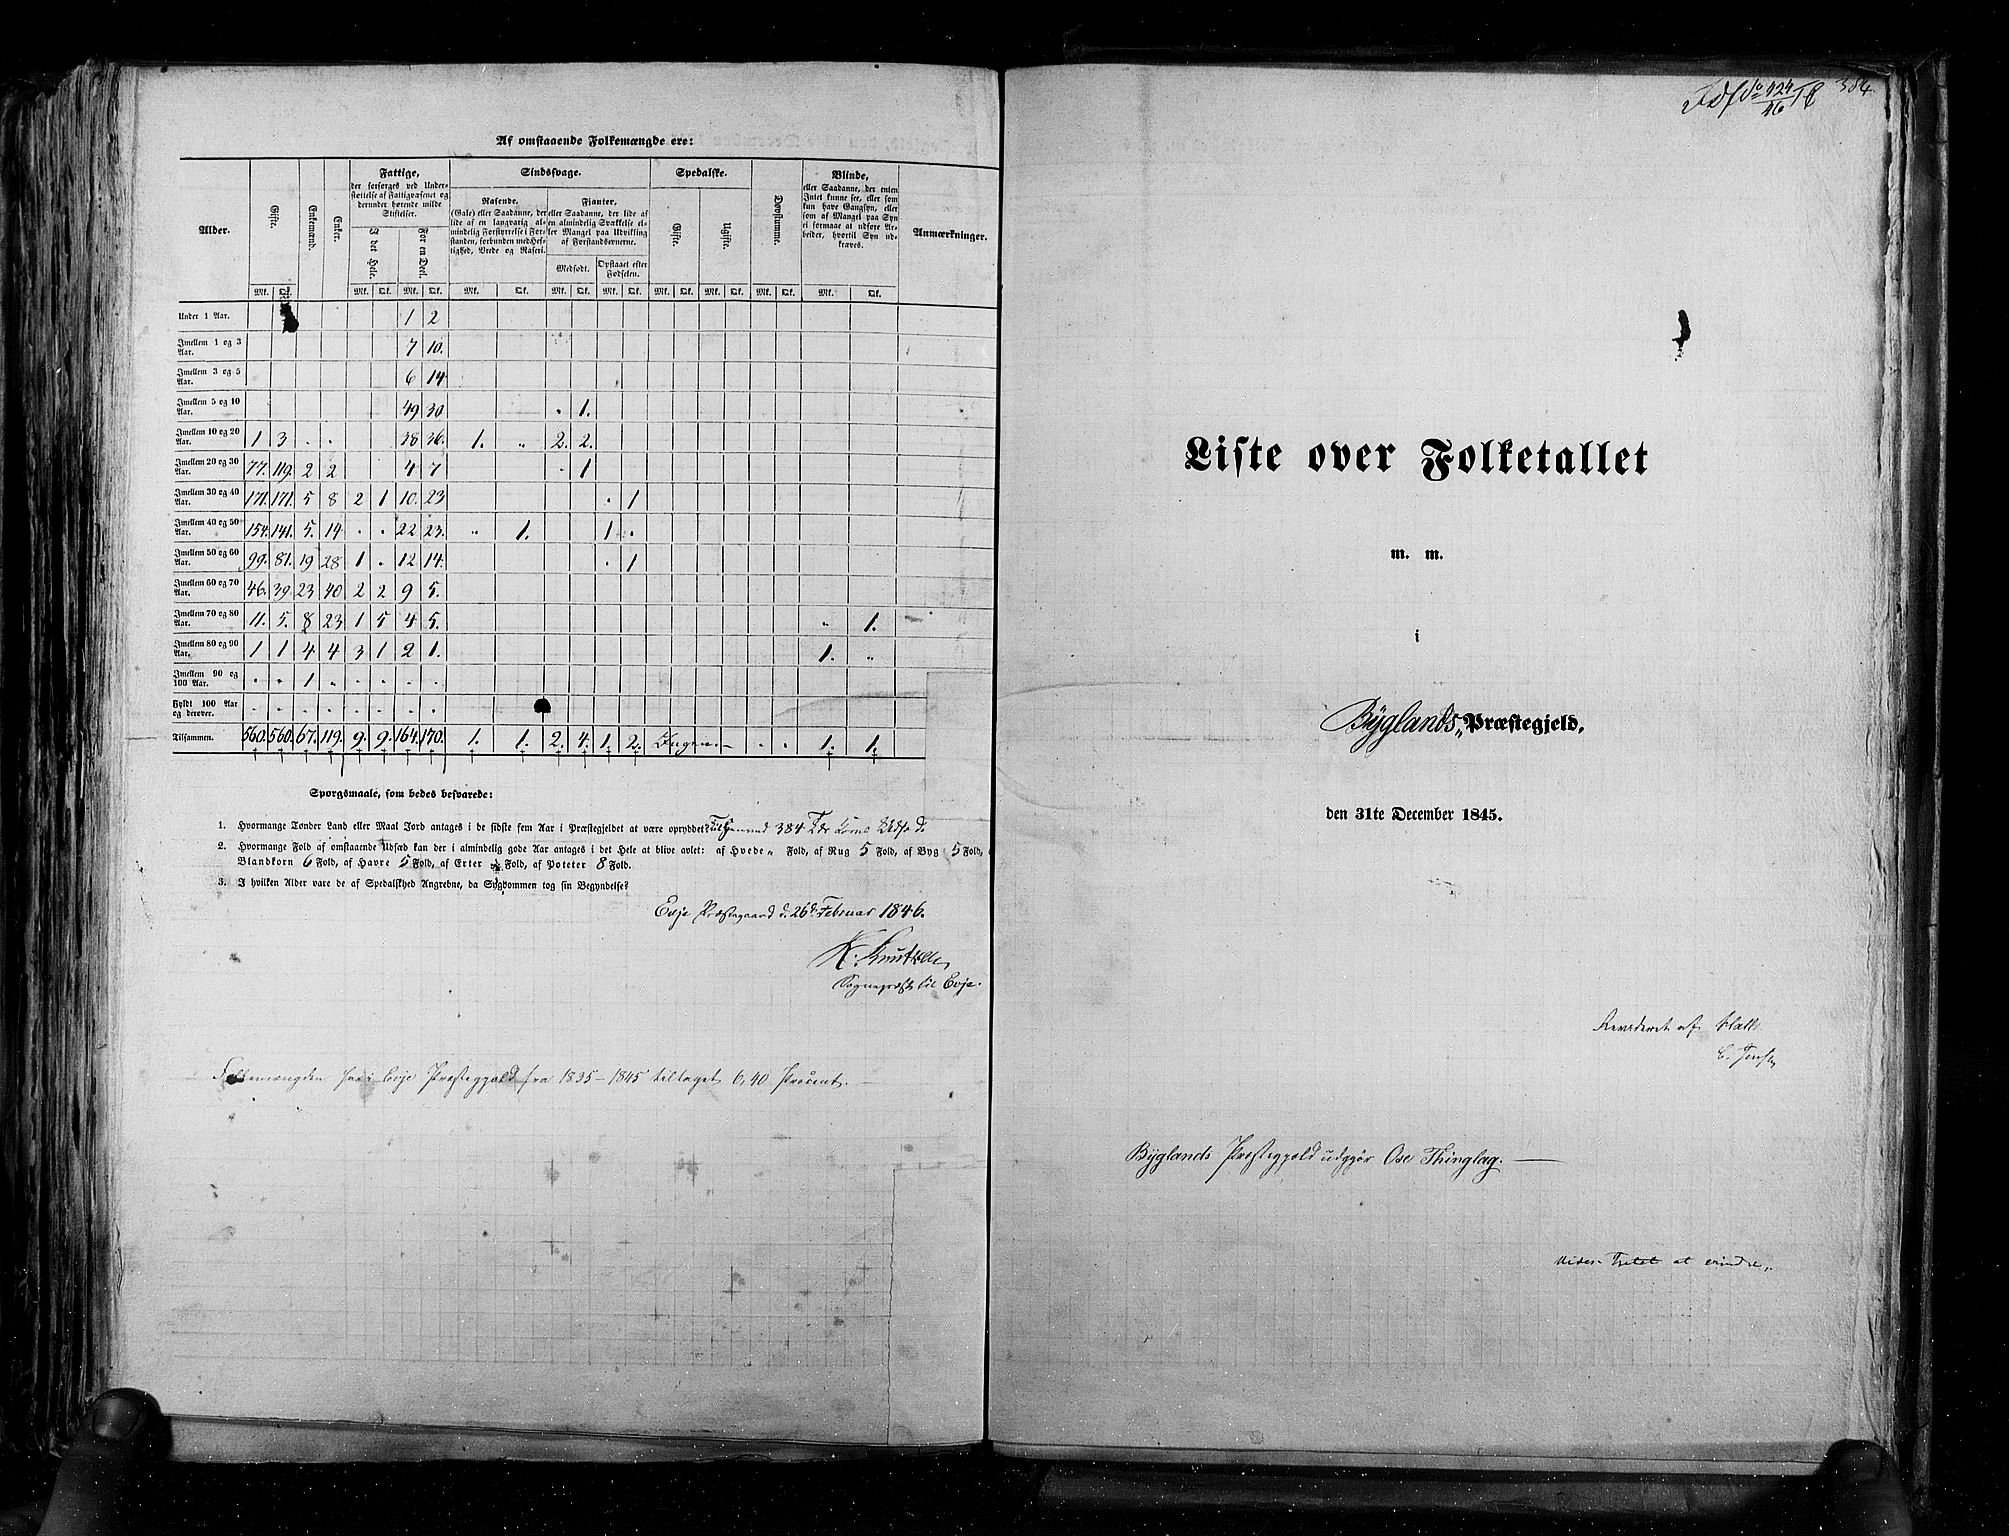 Af omstaaende Folkemængde ere:
Alder.
Gifte.
Enkemænd.
Enker.
Fattige,
der forsørges ved Under-
støttelse af Fattigvæsenet og
derunder hørende milde
Stiftelser.
I det Hele.
For en Deel.
Sindssvage.
Rasende.
(Gale) eller Saadanne, der
lide af en langvarig al-
mindelig Forstyrrelse i For-
standen, forbunden med Hef-
tighed, Vrede og Raseri.
Fjanter,
eller Saadanne, der lide af
en almindelig Svækkelse el-
ler Mangel paa Udvikling
af Forstandsevnerne.
Medfødt.
Opstaaet efter
Fødselen.
Spedalske.
Gifte.
Ugifte.
Døvstumme.
Blinde,
eller Saadanne, der enten
Intet kunne see, eller som
kun have Gangsyn, eller
som af Mangel paa Syn
ei formaae at udføre Ar-
beider, hvortil Syn ud-
kræves.
Anmærkninger.
Mk. Qk. Mk. Qk. Mk. Qk. Mk. Qk. Mk. Qk. Mk. Qk. Mk. Qk. Mk. Qk. Mk. Qk. Mk. Qk.
Under 1 Aar. 1 2
Imellem 1 og 3 Aar. 7 10.
Imellem 3 og 5 Aar. 6 14
Imellem 5 og 10 Aar. 49 30 " 1.
Imellem 10 og 20 Aar. 1 3 . . 38 36. 1. " 2. 2.
Imellem 20 og 30 Aar. 77. 119. 2 2 4 7 " 1
Imellem 30 og 40 Aar. 171. 171. 5 8 2 1 10. 23 " 1
Imellem 40 og 50 Aar. 154. 141. 5. 14 . . 22 23. " 1. 1 "
Imellem 50 og 60 Aar. 99. 81. 19 28 1 . 12 14. " 1
Imellem 60 og 70 Aar. 46. 39. 23 40 2 2 9 5.
Imellem 70 og 80 Aar. 11. 5. 8 23 1 5 4 5. " 1.
Imellem 80 og 90 Aar. 1 1 4 4 3 1 2 1. 1. "
Imellem 90 og 100 Aar. . . 1 . . . . .
Fyldt 100 Aar og derover. . . . . . . . .
Tilsammen. 560. 560. 67. 119. 9. 9. 164. 170. 1. 1. 2. 4. 1. 2. Ingen. – . . 1. 1.
Spørgsmaale, som bedes besvarede:
1. Hvormange Tønder Land eller Maal Jord antages i de sidste fem Aar i Præstegjeldet at være opryddet? 384
2. Hvormange Fold af omstaaende Udsæd kan der i almindelig gode Aar antages i det Hele at blive avlet: af Hvede " Fold, af Rug 5 Fold, af Byg 5 Fold,
Blandkorn 6 Fold, af Havre 5 Fold, af Erter Fold, af Poteter 8 Fold.
3. I hvilken Alder vare de af Spedalskhed Angrebne, da Sygdommen tog sin Begyndelse?
Evje Præstegaard d. 26de Februar 1846.
K. Knutzen
Sognepræst til Evje.
Folkemængden har i Evje Præstegjeld fra 1835–1845 tiltaget 6,40 Procent. –
No 424/46 384
Liste over Folketallet
m. m.
i
Byglands Præstegjeld,
den 31te December 1845.
Revideret af
Byglands Præstegjeld udgjør Ose Thinglag. —
at erindre.